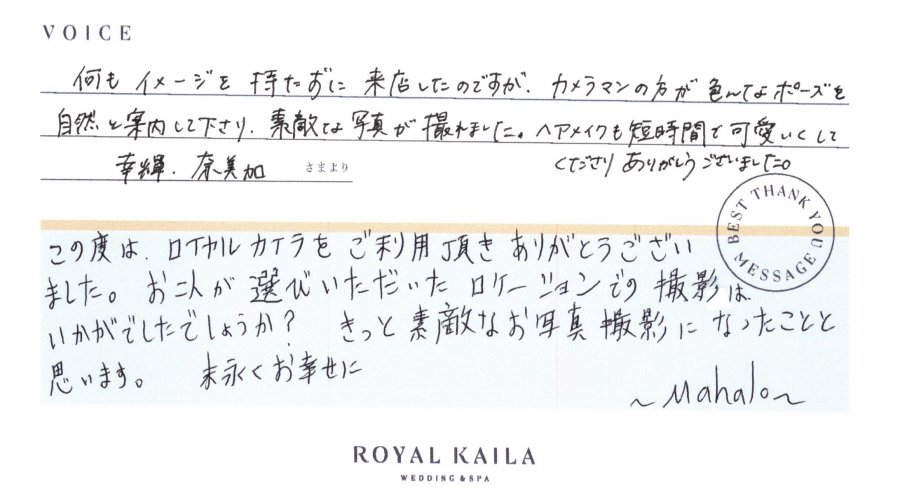 VOICE
何もイメージを持たずに来店したのですが、カメラマンの方が色んなポーズを
自然と案内して下さり、素敵な写真が撮れました。ヘアメイクも短時間で可愛いくして
くださりありがとうございました。
幸輝、奈美加 さまより
BEST THANK YOU MESSAGE
この度は、ロイヤルカイラをご利用頂きありがとうござい
ました。お二人が選びいただいたロケーションでの撮影は
いかがでしたでしょうか? きっと素敵なお写真撮影になったことと
思います。 末永くお幸せに
~Mahalo~
ROYAL KAILA
WEDDING & SPA